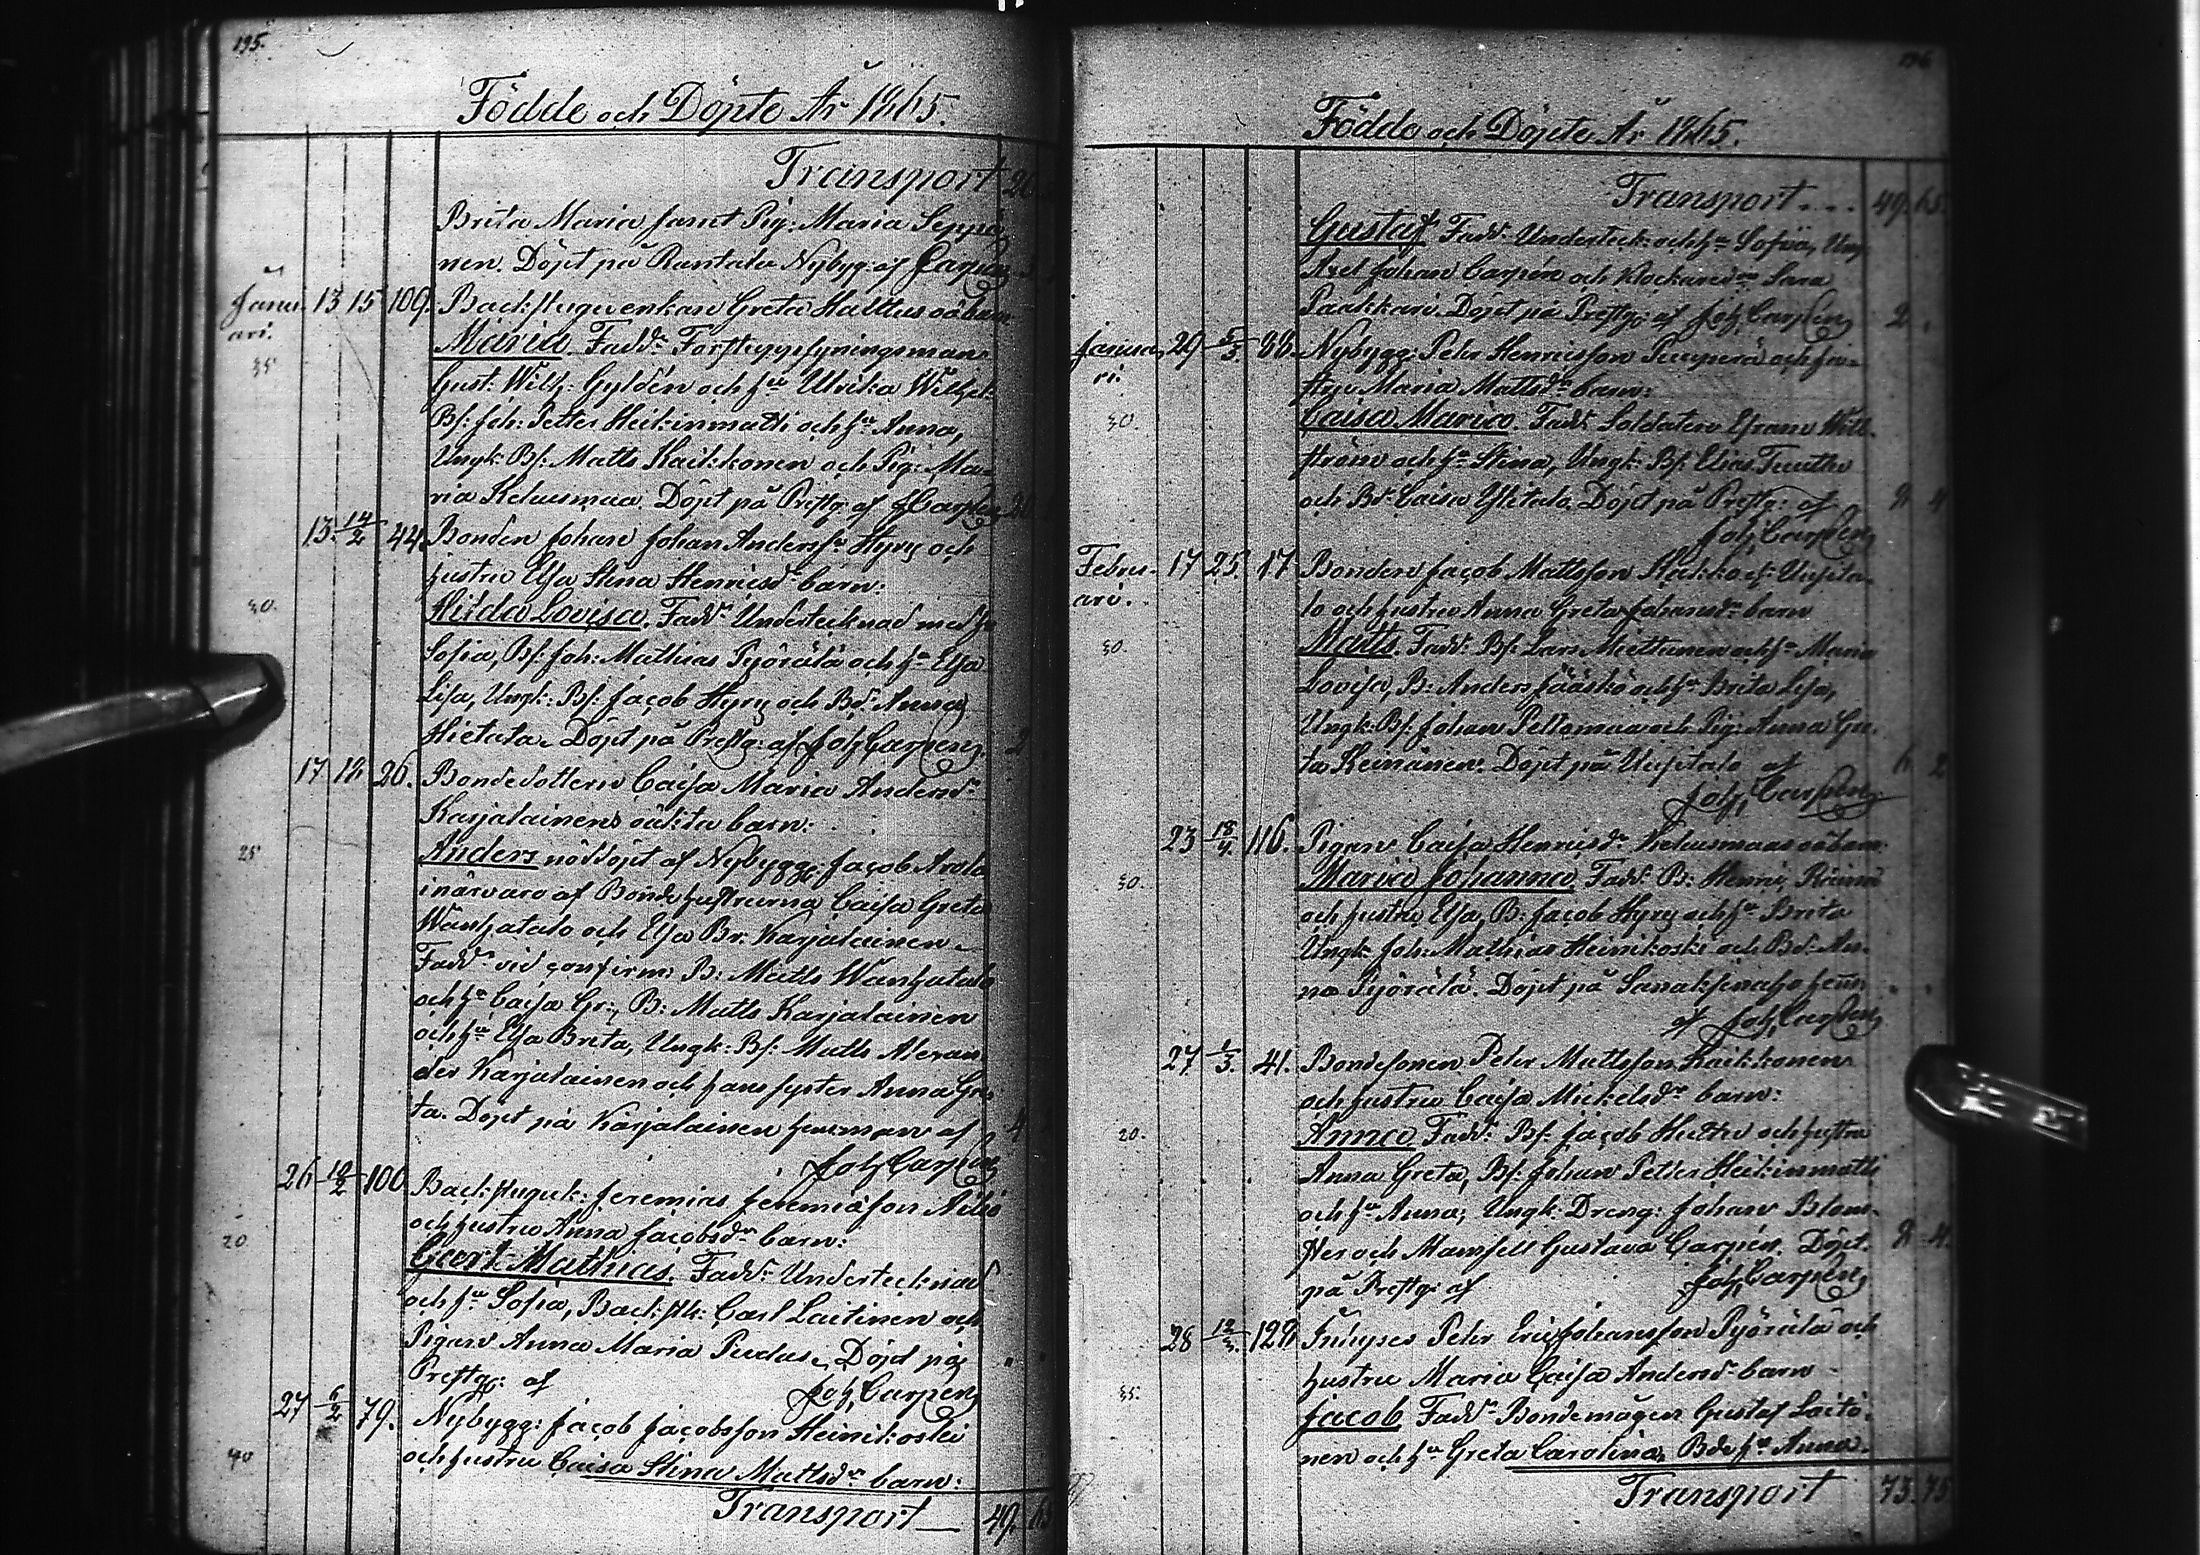 195.
Födde och Döpte År 1865.
Transport
Brita Maria samt Pig: Maria Seppä-
nen. Döpt på Rantala Nybygg: af Carpén
Janu- 13 15 109. Backstuguenkan Greta Halttus oä barn
ari.
35 Maria. Fadd: Forstuppsyningsman
Gust: Wilh: Gyldén och hu Ulrika Wilhel:
Bs: Joh: Petter Heikinmatti och hu Anna,
Ungk: Bs: Matts Kaikkonen och Pig: Ma-
ria Kehusmaa. Döpt på Prestg: af J Carpén
13. 14/2 44. Bonden Johan Johan Anderss: Hyry och
hustru Elsa Stina Henricsdr barn:
30. Hilda Lovisa. Fadd: Undertecknad med hu
Sofia, Bs: Joh: Mathias Pyörälä och hu Elsa
Lisa, Ungk: Bs: Jacob Hyry och Bd: Anna
Hietala. Döpt på Prestg: af Joh Carpén
17 18 26. Bondedottern Caisa Maria Andersdr
Karjalainens oäkta barn:
25 Anders nöddöpt af Nybygg: Jacob Arola
i närvaro af Bondehustrurna Caisa Greta
Wanhatalo och Elsa Br: Karjalainen.
Fadd: vid confirm: B: Matts Wanhatalo
och hu Caisa Gr:, B: Matts Karjalainen
och hu Elsa Brita, Ungk: Bs: Matts Alexan-
der Karjalainen och hans syster Anna Gre-
ta. Döpt på Karjalainen hemman af
Joh Carpén
26 12/2 100 Backstuguk: Jeremias Jeremiasson
och hustru Anna Jacobsdr barn:
20 Geert Mathias. Fadd: Undertecknad
och hu Sofia, Backstk: Carl Laitinen och
Pigan Anna Maria Pudas. Döpt på
Prestg: af Joh Carpén
27 6/2 79. Nybygg: Jacob Jacobsson Heinikoski
40 och hustru Caisa Stina Mattsdr barn:
Transport 49. 65
196
Födde och Döpte År 1865.
Transport... 49. 65.
Gustaf Fadd: Underteck: och hu Sofia, Ung
Axel Johan Carpén och Klockaredr Sara
Paakkari. Döpt på Prestg: af Joh Carpén 2
Janua- 29 5/3 88. Nybygg: Pehr Henricsson Pumperä och hu-
ri. stru Maria Mattsdr barn:
30. Caisa Maria. Fadd: Soldaten Efraim Will-
ström och hu Stina, Ungk: Bs: Elias Tuuttu
och Bd: Caisa Ylitalo. Döpt på Prestg: af
Joh Carpén
Febru- 17 25. 17 Bonden Jacob Mattsson Uusita-
ari. lo och hustru Anna Greta Johansdr barn
30. Matts. Fadd: Bs: Lars Miettunen och hu Maria
Lovisa, B: Anders Jääskö och hu Brita Lisa,
Ungk: Bs: Johan Peltomaa och Pig: Anna Gre-
ta Keinänen. Döpt på Uusitalo af
Joh Carpén
23 18/4 116. Pigan Caisa Henricsdr Kehusmaas oä barn
30. Maria Johanna Fadd: B: Henric
och hustru Elsa, B: Jacob Hyry och hu Brita
Ungk: Joh: Mathias Heinikoski och Bd: An-
na Pyörälä. Döpt på hem
af Joh Carpén
27 1/3. 41. Bondesonen Pehr Mattsson Kaikkonen
och hustru Caisa Mickelsdr barn:
20. Anna Fadd: Bs: Jacob och hustru
Anna Greta, Bs: Johan Petter Heikinmatti
och hu Anna, Ungk: Dreng: Johan Blom-
ster och Mamsell Gustava Carpén. Döpt
på Prestg: af Joh Carpén
28 12/3. 129 Inhyses Pehr Eric Johansson Pyörälä och
hustru Maria Caisa Andersdr barn
35. Jacob Fadd: Bondemågen Gustaf Laito-
nen och hu Greta Carolina, Bde hu Anna
Transport 73. 75